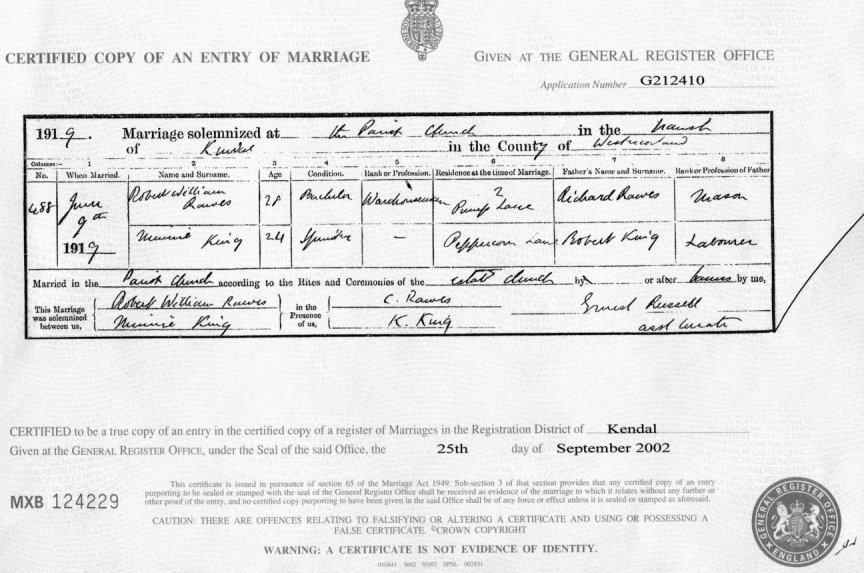 CERTIFIED COPY OF AN ENTRY OF MARRIAGE
GIVEN AT THE GENERAL REGISTER OFFICE
Application Number G212410
1919. Marriage solemnized at the Parish Church in the Parish
of Kendal in the County of Westmorland
Columns:— 1 2 3 4 5 6 7 8
No. When Married. Name and Surname. Age Condition. Rank or Profession. Residence at the time of Marriage. Father's Name and Surname. Rank or Profession of Father
488 June 9th 1919 Robert William Rawes 28 Bachelor Warehouseman 2 Pump Lane Richard Rawes Mason
Minnie King 24 Spinster — Peppercorn Lane Robert King Labourer
Married in the Parish Church according to the Rites and Ceremonies of the Estab Church by or after banns by me,
This Marriage was solemnized between us, Robert William Rawes Minnie King in the Presence of us, C. Rawes K. King Ernest Russell asst Curate
CERTIFIED to be a true copy of an entry in the certified copy of a register of Marriages in the Registration District of Kendal
Given at the GENERAL REGISTER OFFICE, under the Seal of the said Office, the 25th day of September 2002
MXB 124229
This certificate is issued in pursuance of section 65 of the Marriage Act 1949. Sub-section 3 of that section provides that any certified copy of an entry
purporting to be sealed or stamped with the seal of the General Register Office shall be received as evidence of the marriage to which it relates without any further or
other proof of the entry, and no certified copy purporting to have been given in the said Office shall be of any force or effect unless it is sealed or stamped as aforesaid.
CAUTION: THERE ARE OFFENCES RELATING TO FALSIFYING OR ALTERING A CERTIFICATE AND USING OR POSSESSING A
FALSE CERTIFICATE. ©CROWN COPYRIGHT
WARNING: A CERTIFICATE IS NOT EVIDENCE OF IDENTITY.
010441 3662 03/02 SPSL 002831
GENERAL REGISTER OFFICE
ENGLAND